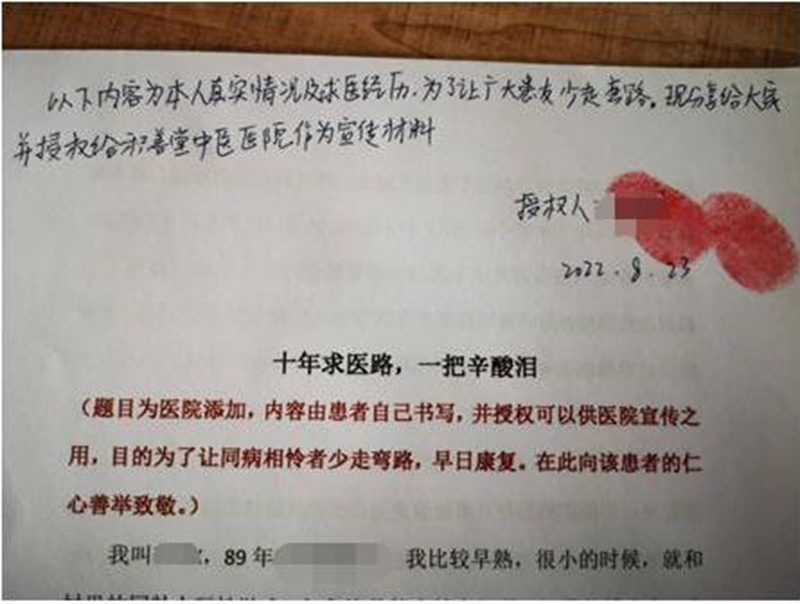 以下内容为本人真实情况及求医经历，为了让广大患友少走弯路。现分享给大家
并授权给积善堂中医医院作为宣传材料
授权人
2022.8.23
十年求医路，一把辛酸泪
（题目为医院添加，内容由患者自己书写，并授权可以供医院宣传之
用，目的为了让同病相怜者少走弯路，早日康复。在此向该患者的仁
心善举致敬。）
我叫 ，89 年 我比较早熟，很小的时候，就和